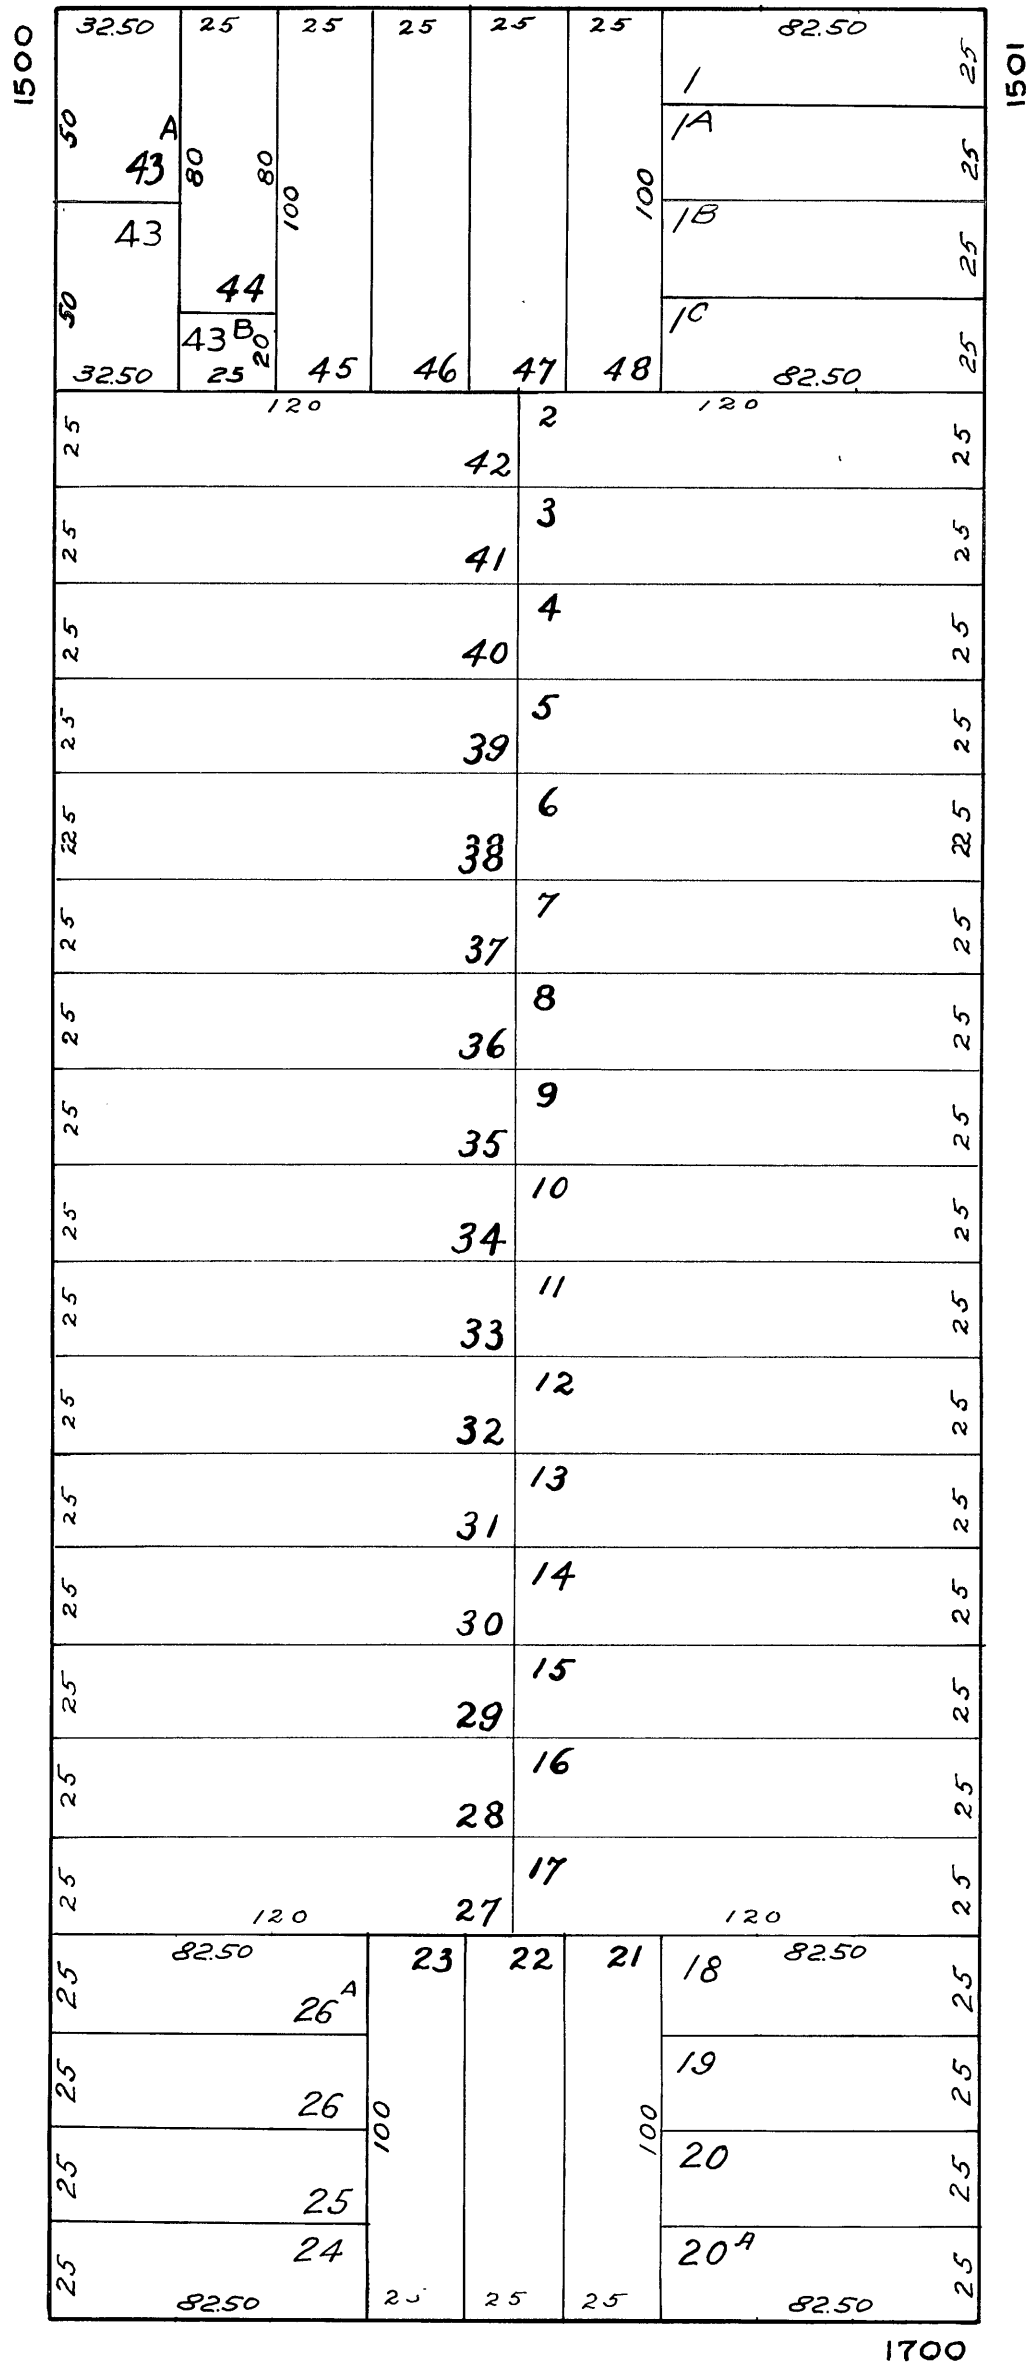 1500
1501
32.50 25 25 25 25 25 82.50
1 25
50 A 43 80 80 100 100
1A 25
43 1B 25
50 44 1C 25
43 B 20
32.50 25 45 46 47 48 82.50
120 120
25 42 2 25
25 41 3 25
25 40 4 25
25 39 5 25
225 38 6 225
25 37 7 25
25 36 8 25
25 35 9 25
25 34 10 25
25 33 11 25
25 32 12 25
25 31 13 25
25 30 14 25
25 29 15 25
25 28 16 25
25 27 17 25
120 120
82.50 23 22 21 82.50
25 26 A 18 25
25 26 19 25
100 100
25 25 20 25
25 24 20 A 25
82.50 25 25 25 82.50
1700